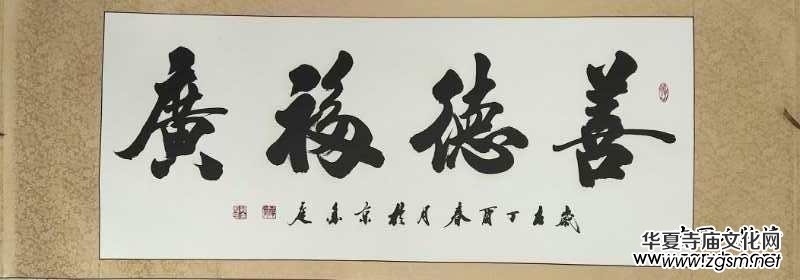 善德福廣
歲在丁酉春月於京
华夏寺庙文化网
www.zgsm.net